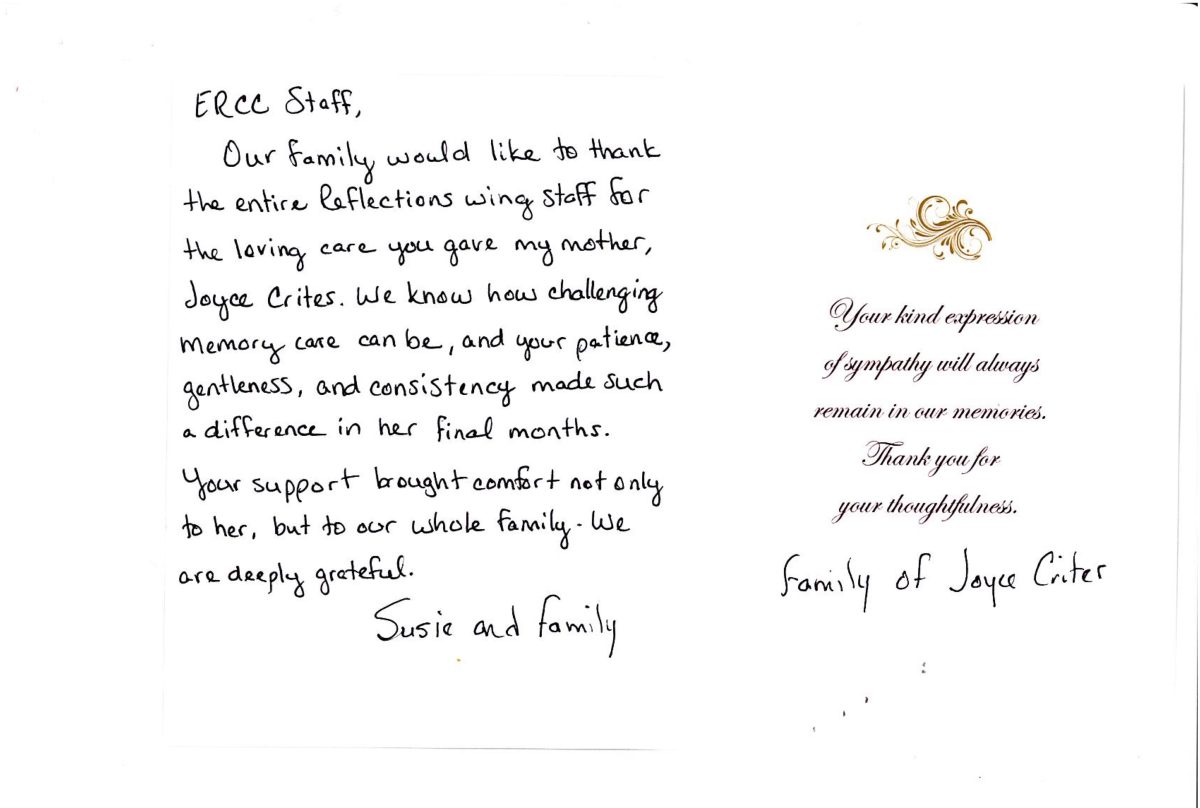 ERCC Staff,
Our family would like to thank
the entire Reflections wing staff for
the loving care you gave my mother,
Joyce Crites. We know how challenging
memory care can be, and your patience,
gentleness, and consistency made such
a difference in her final months.
Your support brought comfort not only
to her, but to our whole family. We
are deeply grateful.
Susie and family
Your kind expression
of sympathy will always
remain in our memories.
Thank you for
your thoughtfulness.
Family of Joyce Criter